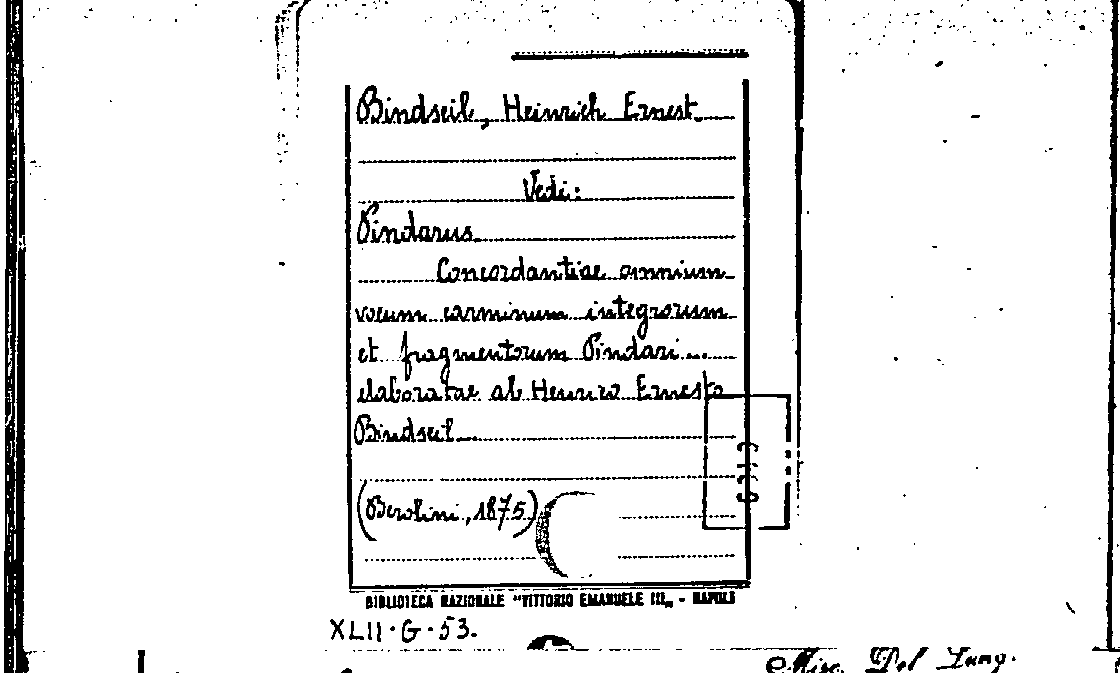 Bindseil, Heinrich Ernest.
Vedi:
Pindarus
Concordantiae omnium
vocum carminum integrorum
et fragmentorum Pindari...
elaboratae ab Henrico Ernesto
Bindseil...
(Berolini, 1875)
BIBLIOTECA NAZIONALE "VITTORIO EMANUELE III„ - NAPOLI
XLII·G·53.
Misc. Del Lung.